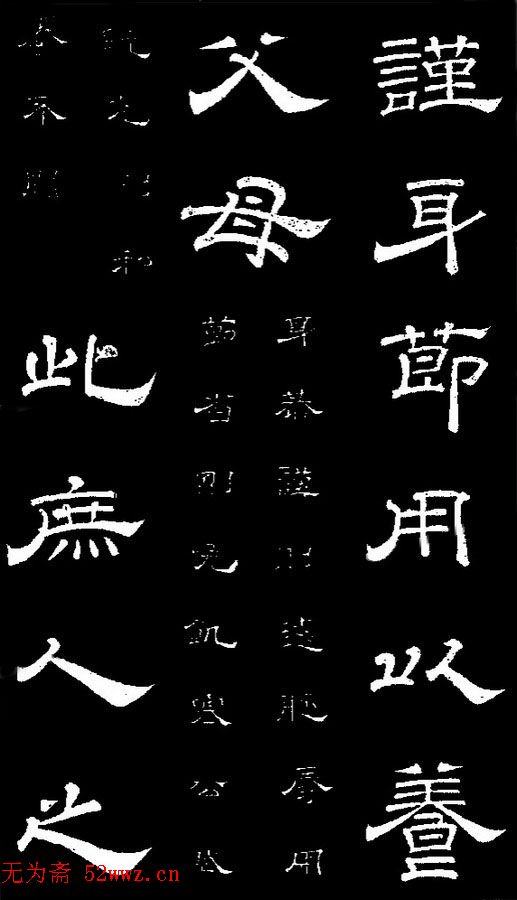 謹身節用以養
父母
身恭謹則遠恥辱用
節省則免飢寒公賦
既充則私
養不闕
此庶人之
无为斋 52wwz.cn